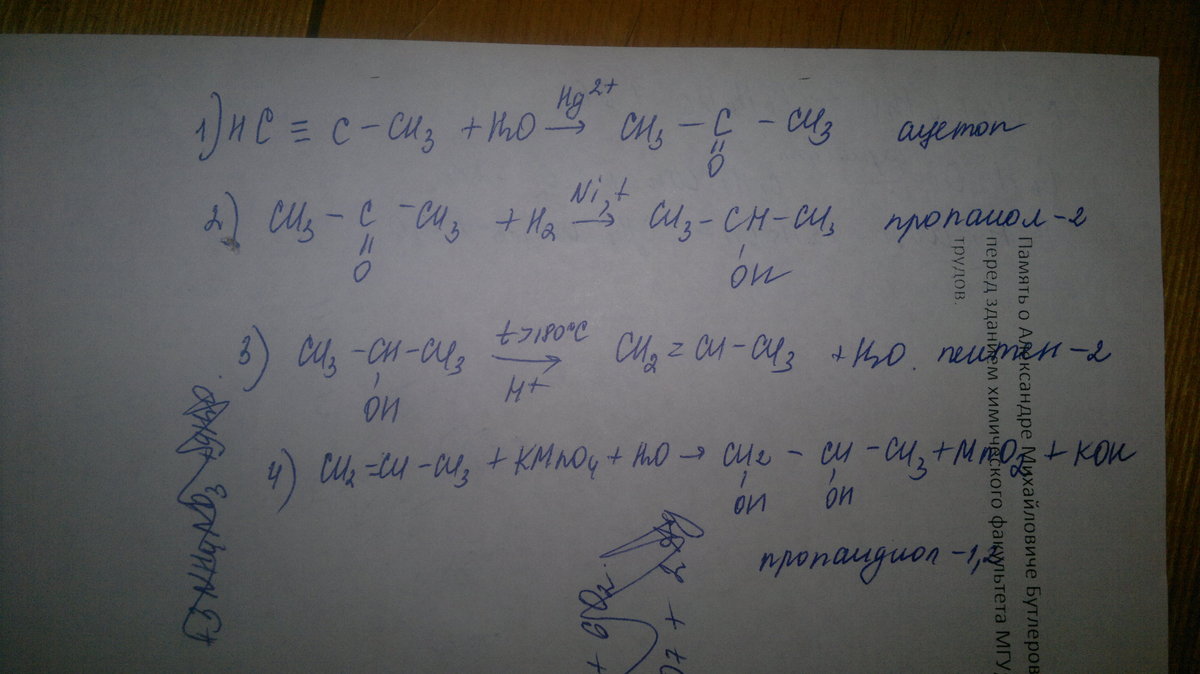 1) HC ≡ C – CH3 + H2O Hg2+ → CH3 – C – CH3 ацетон
O
2) CH3 – C – CH3 + H2 Ni, t → CH3 – CH – CH3 пропанол-2
O
OH
3) CH3 – CH – CH3 t>180°C → H+ CH2 = CH – CH3 + H2O. пентен-2
OH
4) CH2 = CH – CH3 + KMnO4 + H2O → CH2 – CH – CH3 + MnO2 + KOH
OH OH
пропандиол-1,2
Память о Александре Михайловиче Бутлеров
перед зданием химического факультета МГУ
трудов.